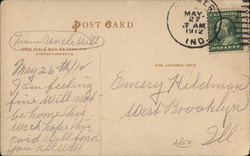 POST CARD
MAY
27
3 AM
1912
IND.
From Uncle Will
THIS SPACE MAY BE USED FOR
CORRESPONDENCE
FOR ADDRESS ONLY
May 26th/12
I am feeling
fine Will not
be home this
week hope this
card will find
you all well
Emery Hildman
West Brooklyn
Ill